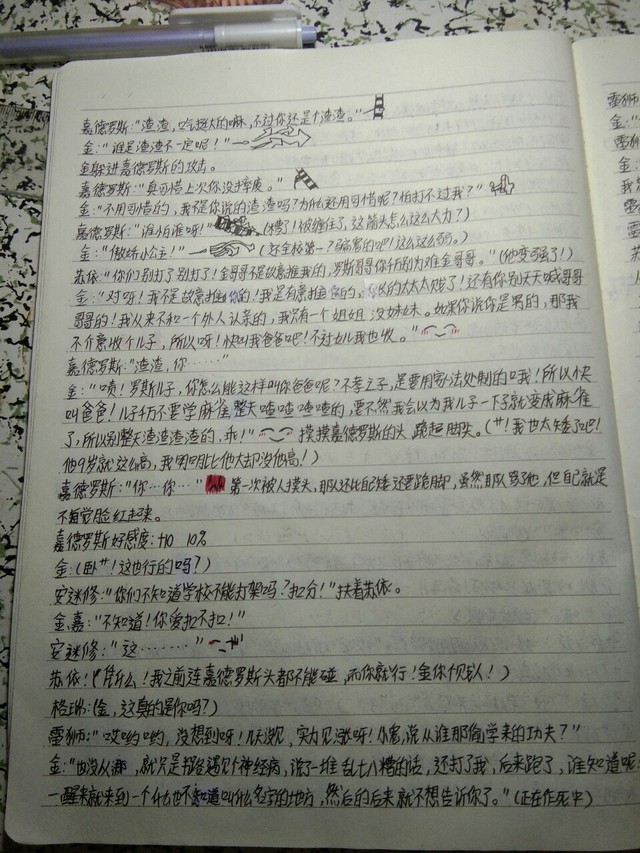 嘉德罗斯:"渣渣,吃挺大的嘛,不过你还是个渣渣。"
金:"谁是渣渣不一定呢!"
金躲进嘉德罗斯的攻击。
嘉德罗斯:"真可惜上次你没掉度。"
金:"不用可惜的,我不是你说的渣渣吗?为什么还用可惜呢?怕打不过我?"
嘉德罗斯:"谁怕谁呀!" (糟了!被缠住了,这箭头怎么这么大力?)
金:"傲娇小公主!" (还全校第一?骗害的吧!这么这么弱。)
苏依:"你们别打了别打了!金哥哥不是故意推我的,罗斯哥哥你们别为难金哥哥。"(他变弱了!)
金:"对呀!我不是故意推你的!我是有意推你的,你的太太太贱了!还有你别天天喊哥哥
哥哥的!我从来不和一个外人认亲的,我只有一个姐姐,没妹妹。如果你说你是男的,那我
不介意收个儿子,所以呀!快叫我爸爸吧!不对女儿我也收。"
嘉德罗斯:"渣渣,你……"
金:"啧!罗斯儿子,你怎么能这样叫你爸爸呢?不孝之子,是要用家法处制的哦!所以快
叫爸爸!儿子们不要学麻雀整天喳喳喳喳的,要不然我会以为我儿子一下子就变成麻雀
了,所以别整天渣渣渣渣的,乖!" 摸摸嘉德罗斯的头,踮起脚尖。(艹!我也太矮了吧!
他9岁就这么高,我明明比他大却没他高!)
嘉德罗斯:"你…你…" 第一次被人摸头,那人还比自己矮还要踮脚,虽然那人骂了他,但自己就是
不知觉脸红起来。
嘉德罗斯好感度:+10 10%
金:(卧艹!这也行的吗?)
安迷修:"你们不知道学校不能打架吗?扣分!"扶着苏依。
金,嘉:"不知道!你爱扣不扣!"
安迷修:"这………"
苏依:(凭什么!我之前连嘉德罗斯头都不能碰,而你就行!金你个贱人!)
格瑞:(金,这真的是你吗?)
雷狮:"哎哟哟,没想到呀!几天没见,实力见涨呀!小鬼,说从谁那偷学来的功夫?"
金:"也没从哪,就只是那爸遇见个神经病,说了一堆乱七八糟的话,还打了我,后来跑了,谁知道呢
一醒来就来到一个什么也不知道叫什么名字的地方,然后的后来就不想告诉你了。"(正在作死中)
雷狮
金:"
雷狮
金: